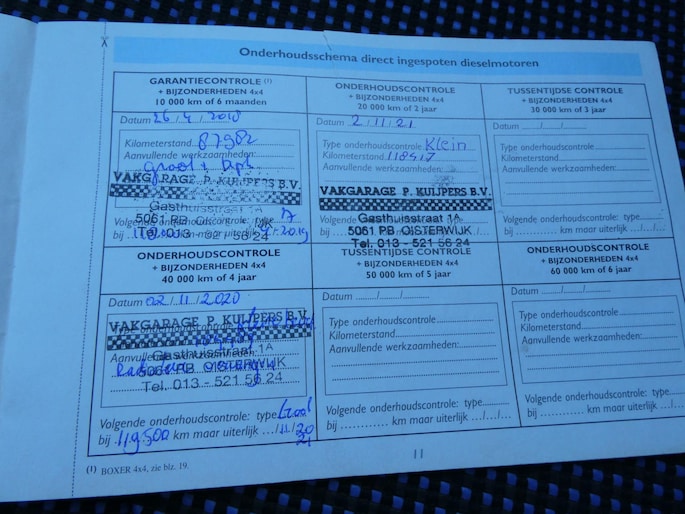 Onderhoudsschema direct ingespoten dieselmotoren
GARANTIECONTROLE (1)
+ BIJZONDERHEDEN 4x4
10 000 km of 6 maanden
Datum 26/4/2018
Kilometerstand 87982
Aanvullende werkzaamheden:
Groot +
VAKGARAGE P. KUIJPERS B.V.
Gasthuisstraat 1A
5061 PB
Tel. 013 - 521 56 24
Volgende onderhoudscontrole: type
bij km maar uiterlijk 2019
ONDERHOUDSCONTROLE
+ BIJZONDERHEDEN 4x4
20 000 km of 2 jaar
Datum 2/11/21
Type onderhoudscontrole Klein
Kilometerstand
Aanvullende werkzaamheden:
VAKGARAGE P. KUIJPERS B.V.
Gasthuisstraat 1A
5061 PB OISTERWIJK
Tel. 013 - 521 56 24
Volgende onderhoudscontrole: type
bij km maar uiterlijk
TUSSENTIJDSE CONTROLE
+ BIJZONDERHEDEN 4x4
30 000 km of 3 jaar
Datum ....../....../......
Type onderhoudscontrole
Kilometerstand
Aanvullende werkzaamheden:
Volgende onderhoudscontrole: type
bij ............ km maar uiterlijk .../.../...
ONDERHOUDSCONTROLE
+ BIJZONDERHEDEN 4x4
40 000 km of 4 jaar
Datum 02/11/2020
Type onderhoudscontrole
Aanvullende
VAKGARAGE P. KUIJPERS B.V.
Gasthuisstraat 1A
5061 PB OISTERWIJK
Tel. 013 - 521 56 24
Volgende onderhoudscontrole: type Groot
bij 119.500 km maar uiterlijk .../11/2021
TUSSENTIJDSE CONTROLE
+ BIJZONDERHEDEN 4x4
50 000 km of 5 jaar
Datum ......../......../........
Type onderhoudscontrole
Kilometerstand
Aanvullende werkzaamheden:
Volgende onderhoudscontrole: type
bij ............ km maar uiterlijk .../.../...
ONDERHOUDSCONTROLE
+ BIJZONDERHEDEN 4x4
60 000 km of 6 jaar
Datum ......../......../........
Type onderhoudscontrole
Kilometerstand
Aanvullende werkzaamheden:
Volgende onderhoudscontrole: type
bij ............ km maar uiterlijk .../.../...
(1) BOXER 4x4, zie blz. 19.
11